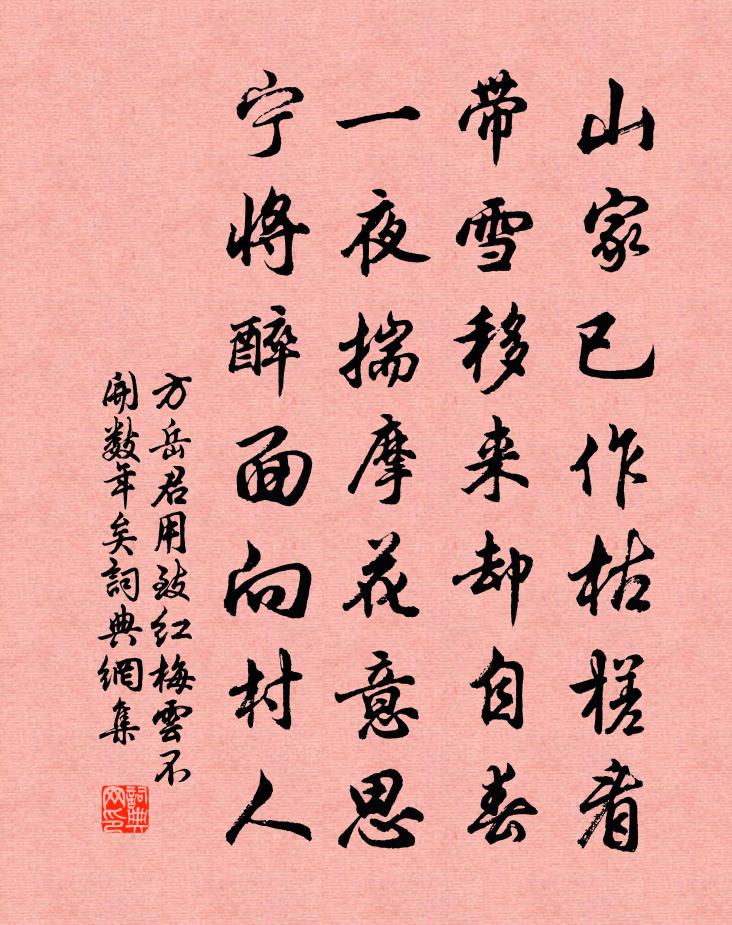 山家已作枯槎看
带雪移来却自春
一夜揣摩花意思
宁将醉面向村人
方岳君用致红梅雲不
開数年矣詞典網集
詞典
网印